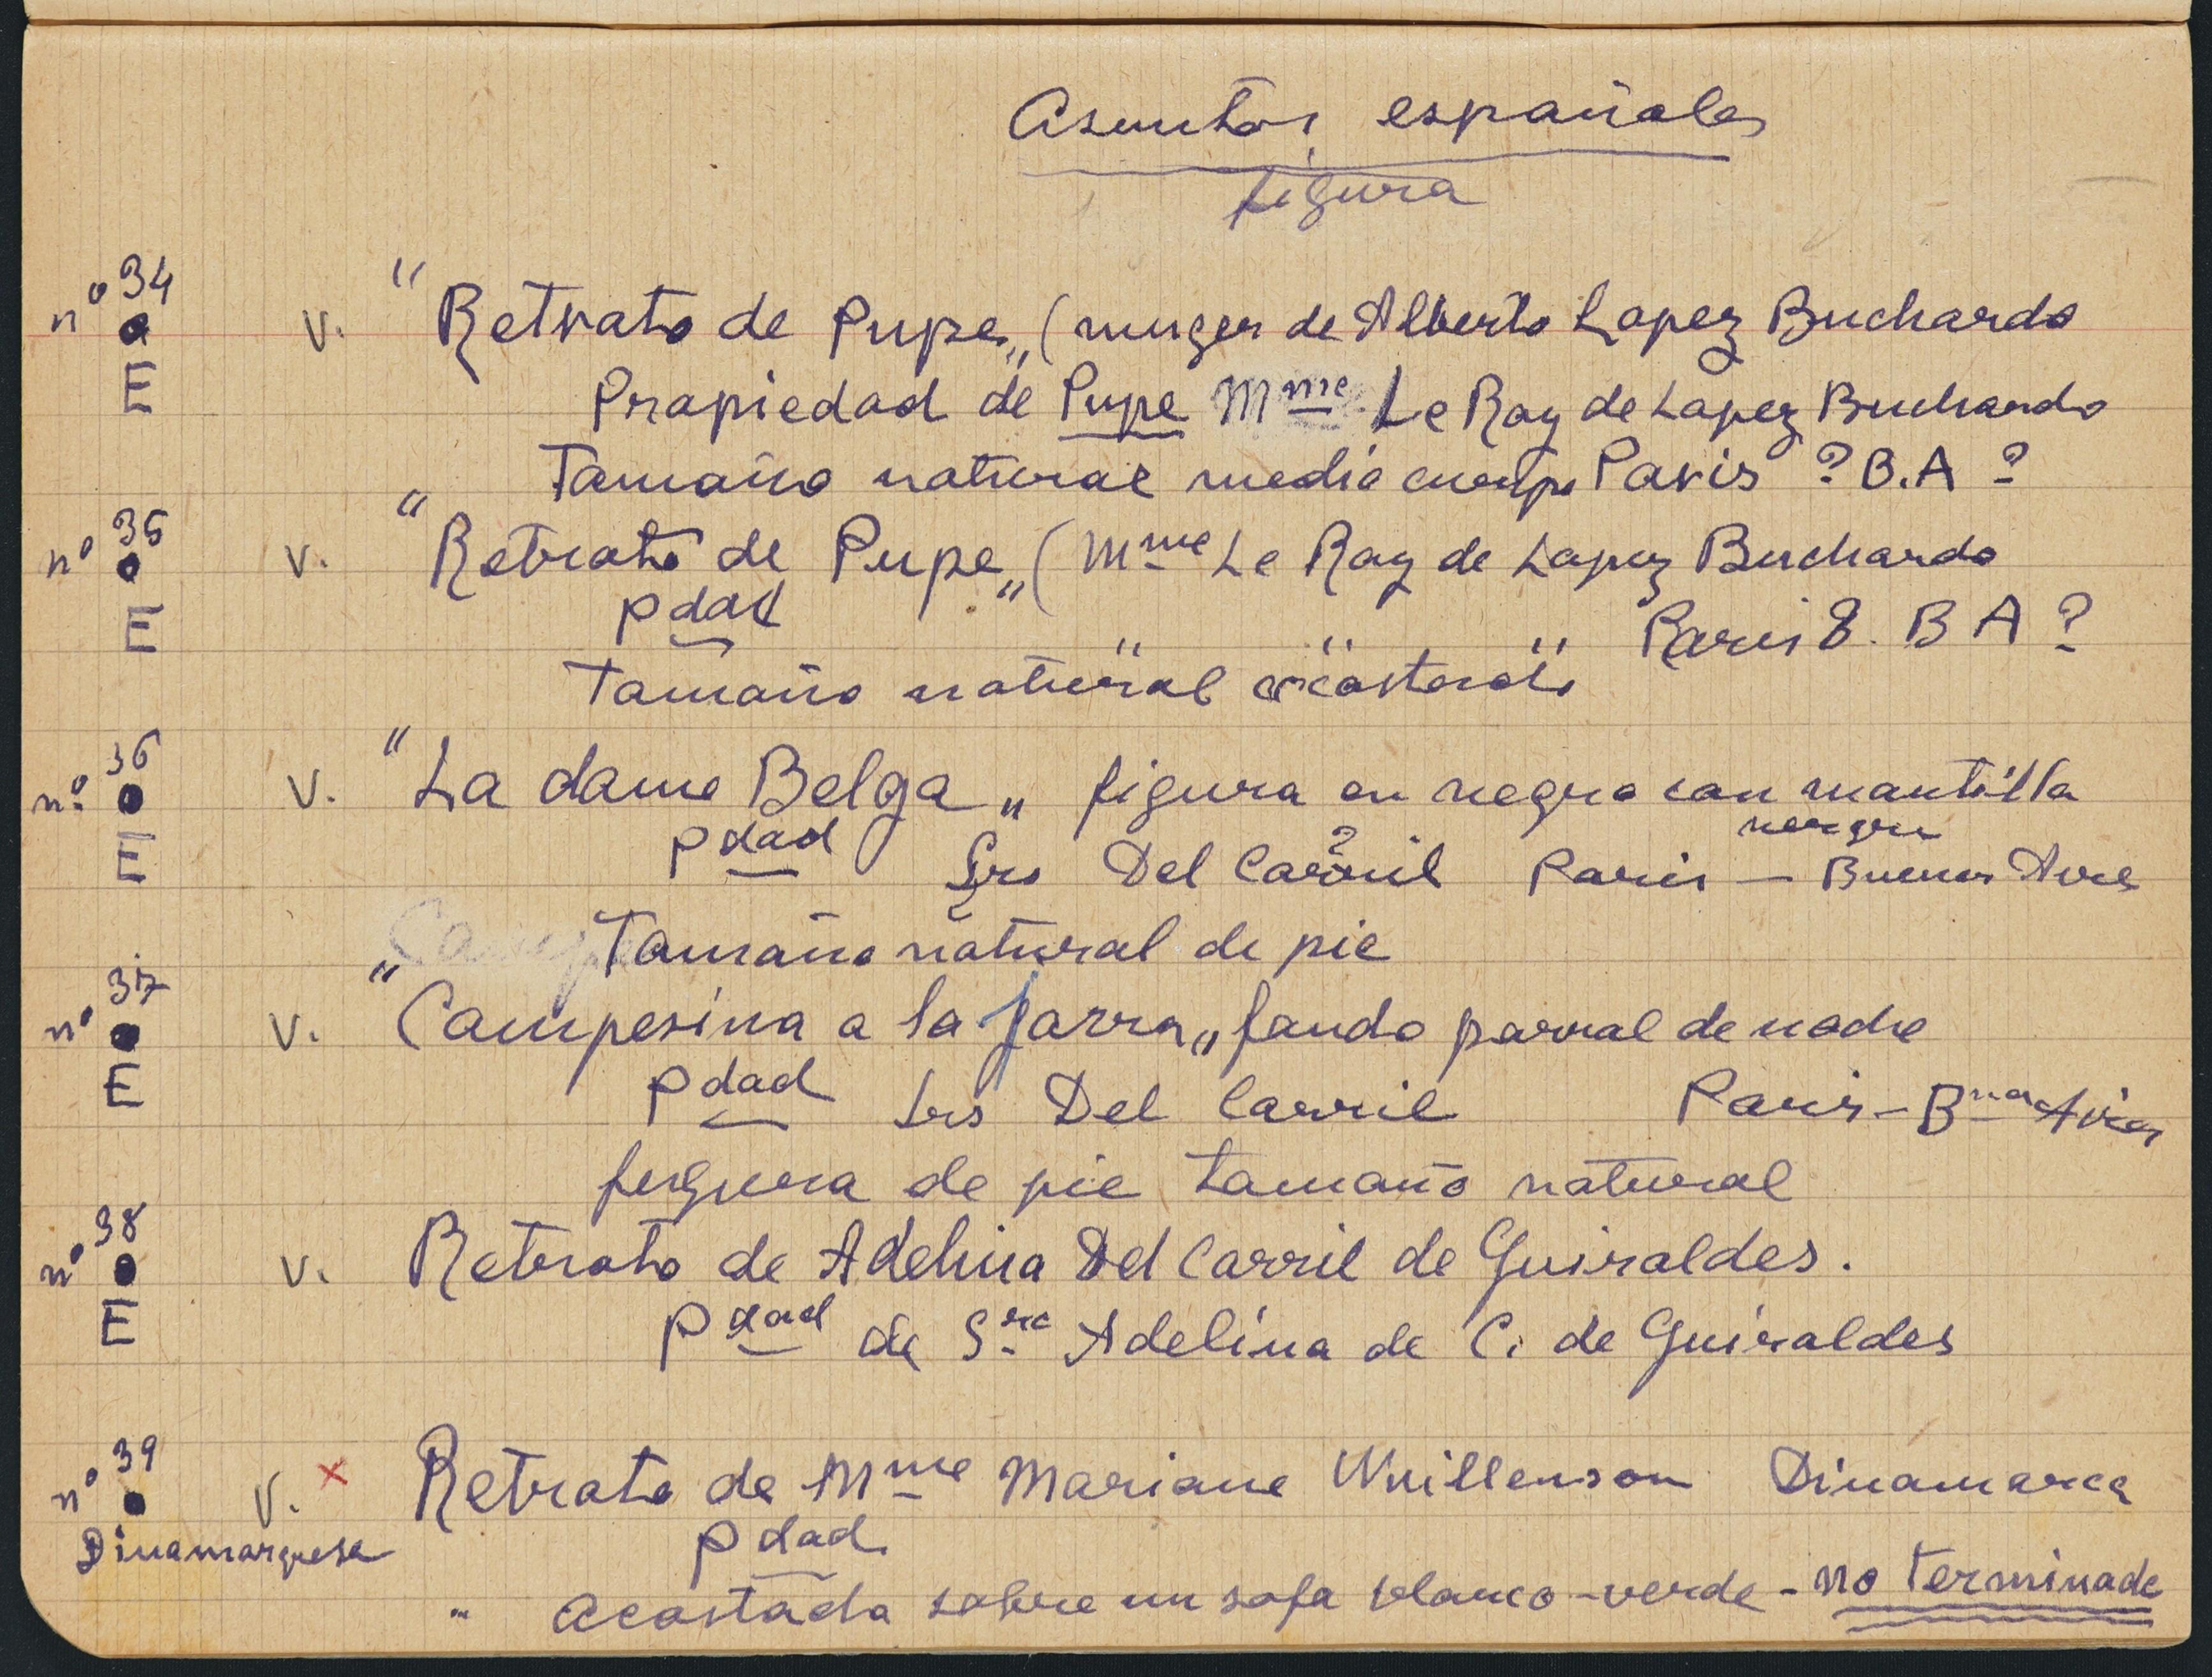 Asuntos españoles
figura
nº 34 E v. "Retrato de Pupe„ (muger de Alberto Lopez Buchardo
Propiedad de Pupe Mme Le Ray de Lopez Buchardo
Tamaño natural medio cuerpo Paris ? B.A ?
nº 35 E v. "Retrato de Pupe„ (Mme Le Ray de Lopez Buchardo
Pdad " " " Paris ? B A ?
Tamaño natural acostada
nº 36 E v. "La dame Belga„ figura en negro con mantilla
negra
Pdad Srs Del Carril ? Paris — Buenos Aires
Tamaño natural de pie
nº 37 E v. "Campesina a la Jarra„ fondo parral de noche
Pdad Srs Del Carril Paris – Bnos Aires
figura de pie tamaño natural
nº 38 E v. Retrato de Adelina Del Carril de Guiraldes.
Pdad de Sra Adelina de C. de Guiraldes
nº 39 v. x Retrato de Mme Mariane Wuillenson Dinamarca
Dinamarquesa Pdad
" acostada sobre un sofa blanco-verde - no terminado